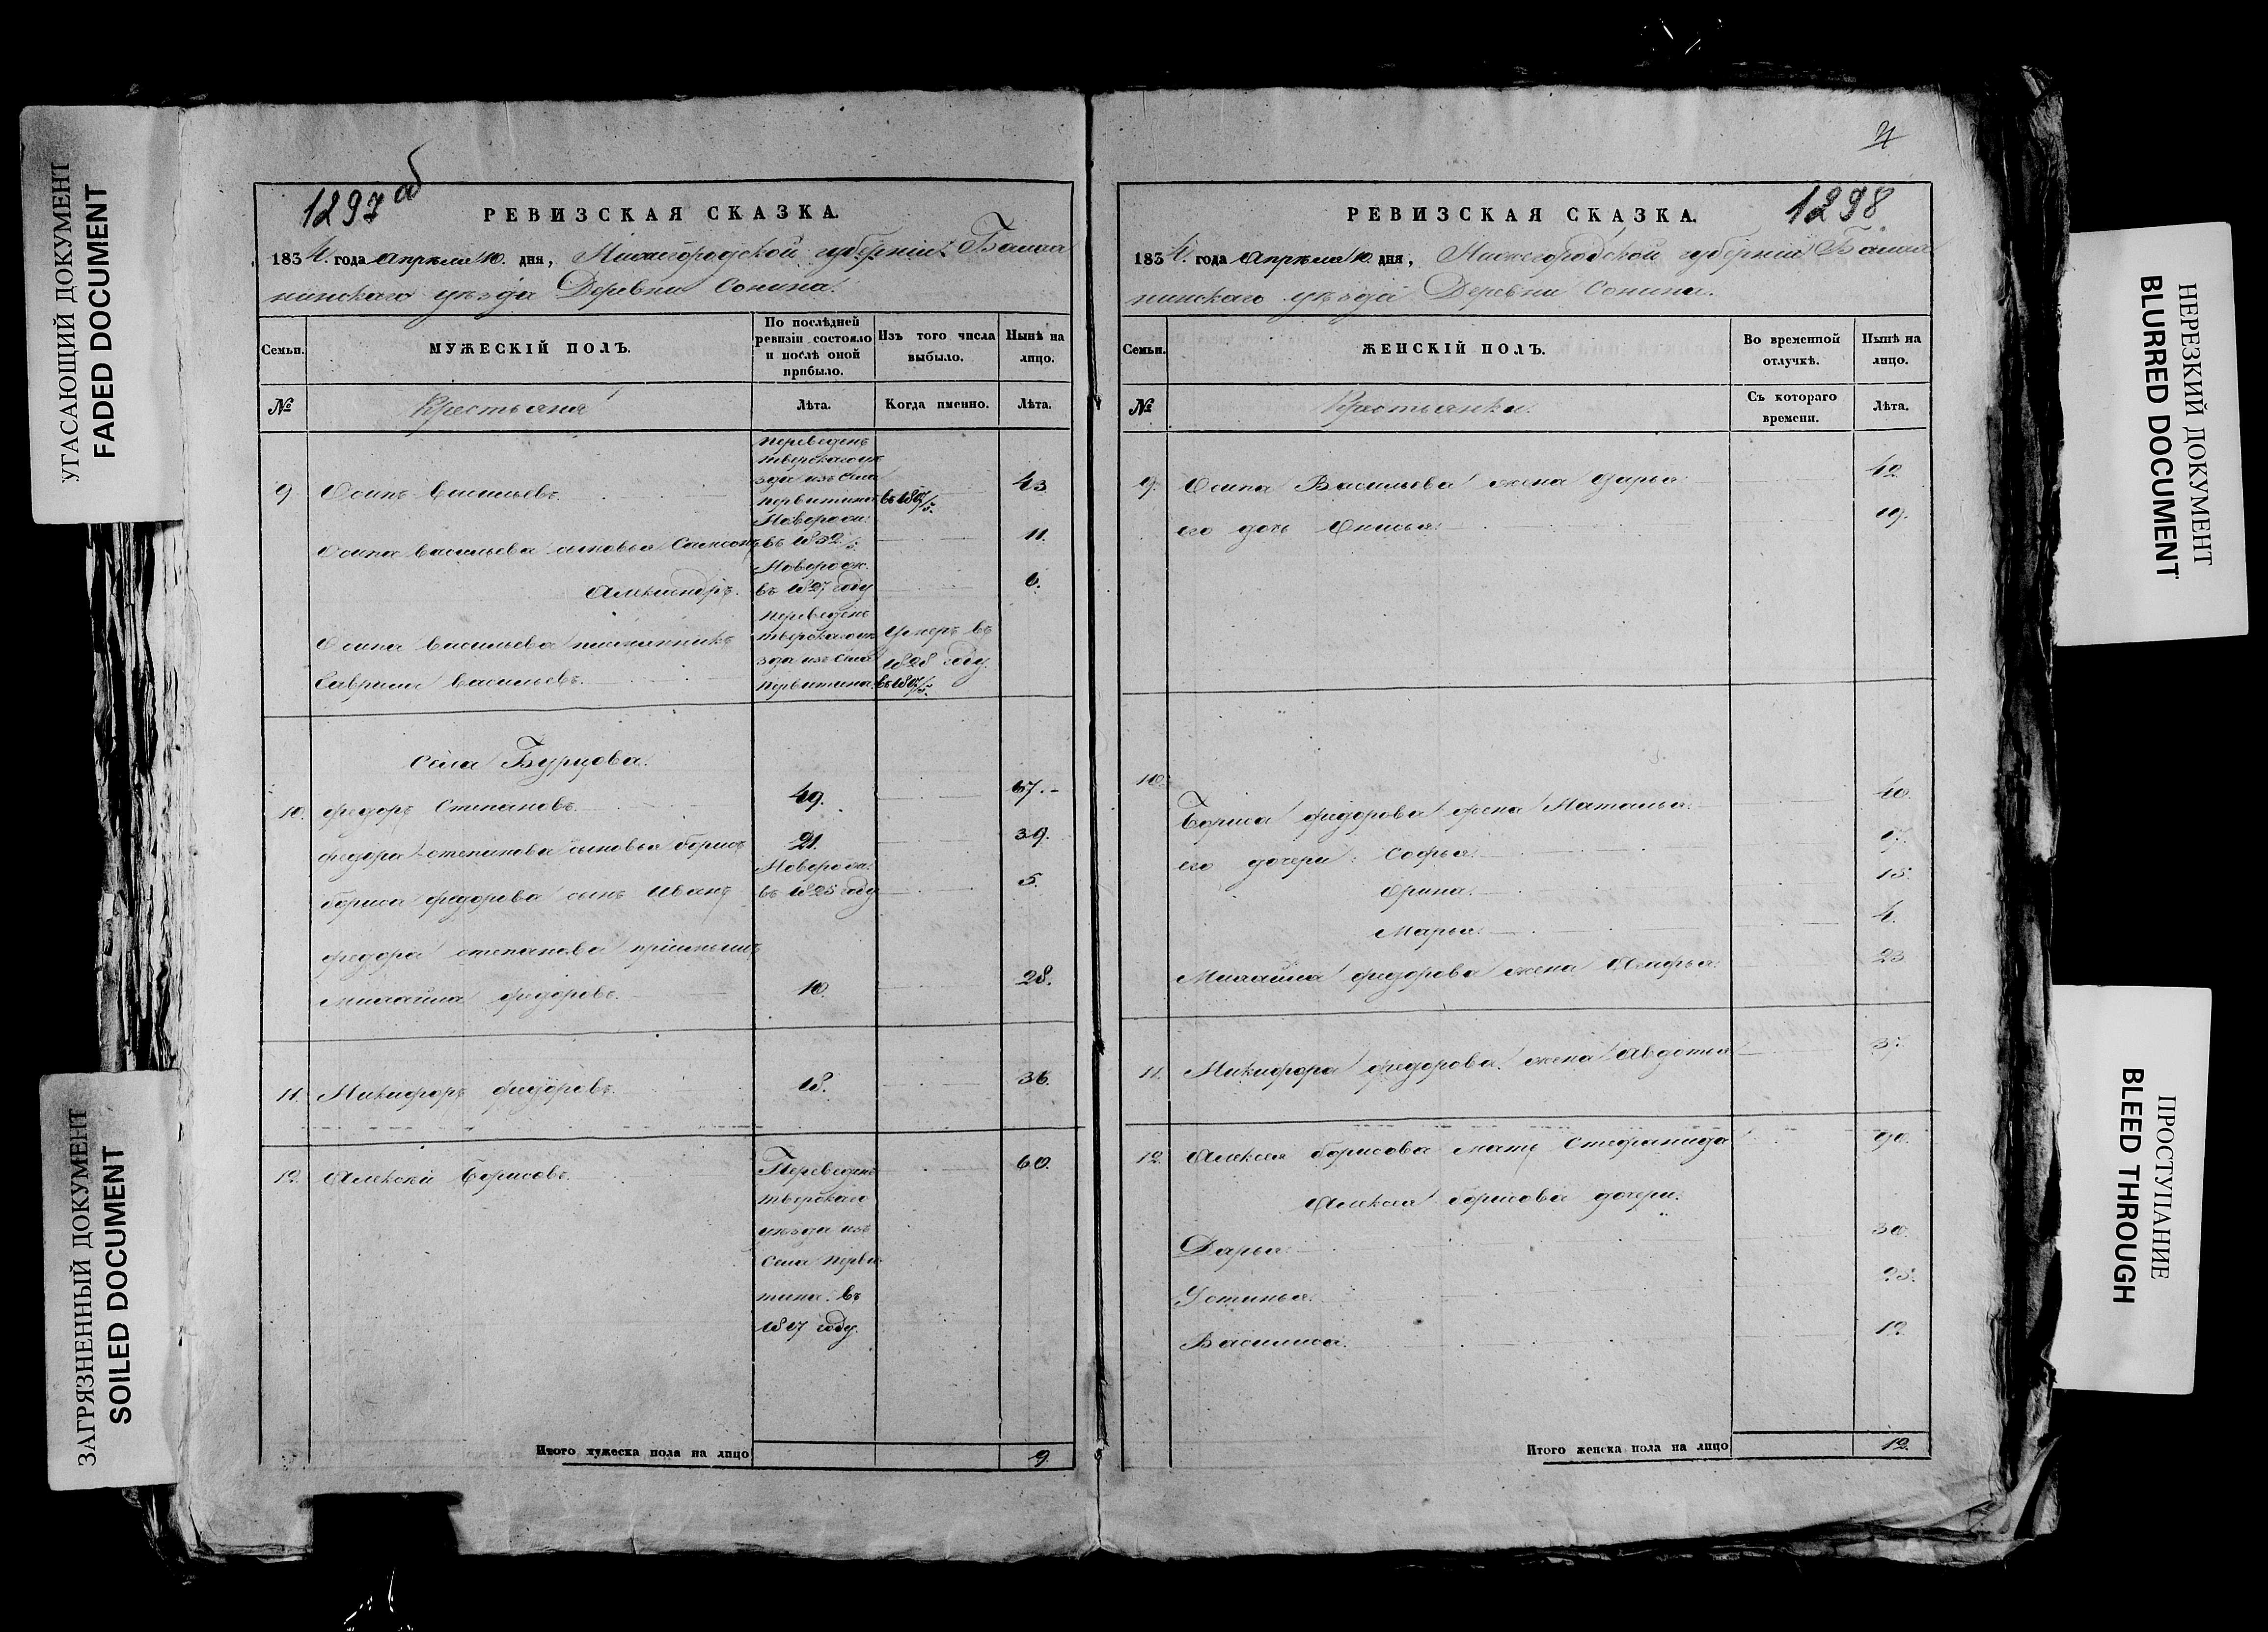 УГАСАЮЩИЙ ДОКУМЕНТ
FADED DOCUMENT
ЗАГРЯЗНЕННЫЙ ДОКУМЕНТ
SOILED DOCUMENT
1297 об
РЕВИЗСКАЯ СКАЗКА.
1834. года Апреля 10. дня, Нижегородской губернiи Балах
нинскаго уезда Деревни Сонина.
Семьи.
МУЖЕСКIЙ ПОЛЪ.
По послѣдней ревизiи состояло и послѣ оной прибыло.
Изъ того числа выбыло.
Нынѣ на лицо.
№
Крестьяна
Лѣта.
Когда именно.
Лѣта.
переведенъ
тверскаго уѣ
зда изъ села
9 Осипъ Васильевъ. первитина въ 1817/г. 43
Новорож:
Осипа Васильева сыновья въ 1832/г. 11.
Новорож.
Александръ. въ 1827 году 6.
переведенъ
Осипа Васильева племянникъ тверскаго уѣ Умеръ въ
зда изъ села 1828 году.
Васильевъ. первитина въ 1817/г.
Села Бурцова.
10. Федоръ Степановъ. 49. 67.
Федора Степанова сыновья борисъ 21. 39.
Новорож:
бориса федорова сынъ Иванъ въ 1825 году 5.
федора степанова
федоровъ. 10. 28.
11. Никифоръ федоровъ. 18. 36.
12. Алексѣй Борисовъ. Переведенъ 60.
тверскаго
уѣзда изъ
села перви
тина. въ
1817 году.
Итого мужеска пола на лицо 9.
1298
РЕВИЗСКАЯ СКАЗКА.
1834. года Апреля 10. дня, Нижегородской губернiи Балах
нинскаго уѣзда Деревни Сонина.
Семьи.
ЖЕНСКIЙ ПОЛЪ.
Во временной отлучкѣ.
Нынѣ на лицо.
№
Крестьянки.
Съ котораго времени.
Лѣта.
9. Осипа Васильева жена Дарья. 42.
его дочь 19.
10.
Бориса федорова жена Наталья. 40.
его дочери: Софья. 17.
Орина. 15.
Марья. 4.
федорова жена 23
11. Никифора федорова жена Авдотья 37.
12. Алексея борисова мать Стефанида 90.
Алексея борисова дочери:
Дарья. 30.
Устинья. 25.
Василиса. 12.
Итого женска пола на лицо 12.
НЕРЕЗКИЙ ДОКУМЕНТ
BLURRED DOCUMENT
ПРОСТУПАНИЕ
BLED THROUGH